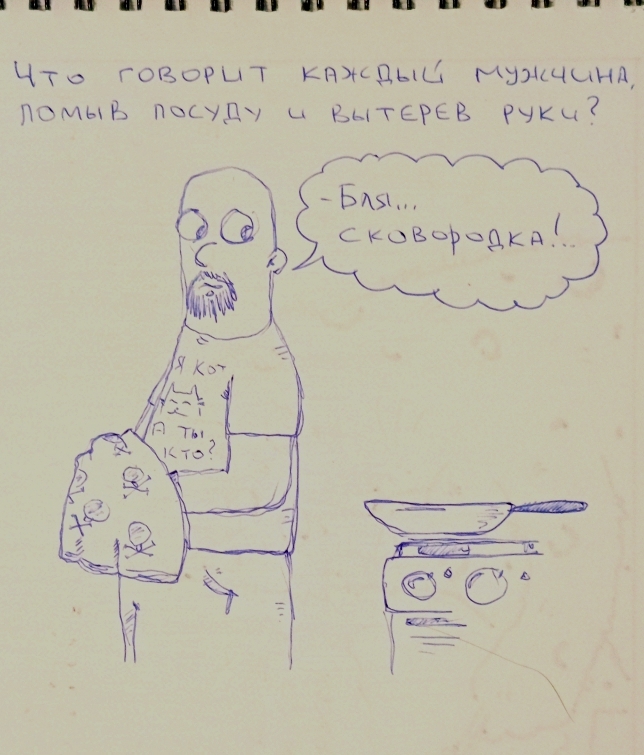 Что говорит каждый мужчина,
помыв посуду и вытерев руки?
- Бля...
сковородка!..
Я кот
А ты
кто?